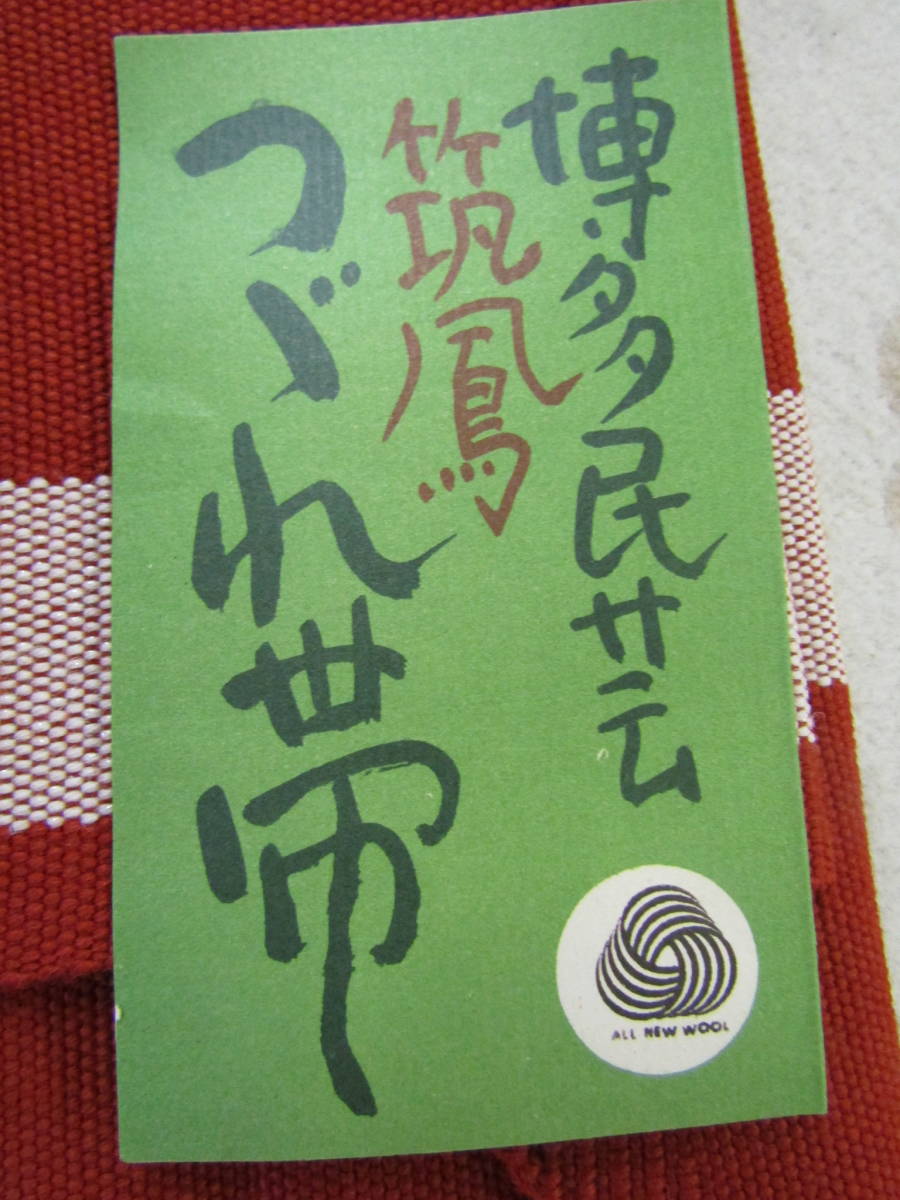 博多民芸
筑鳳
つゞれ帯
ALL NEW WOOL